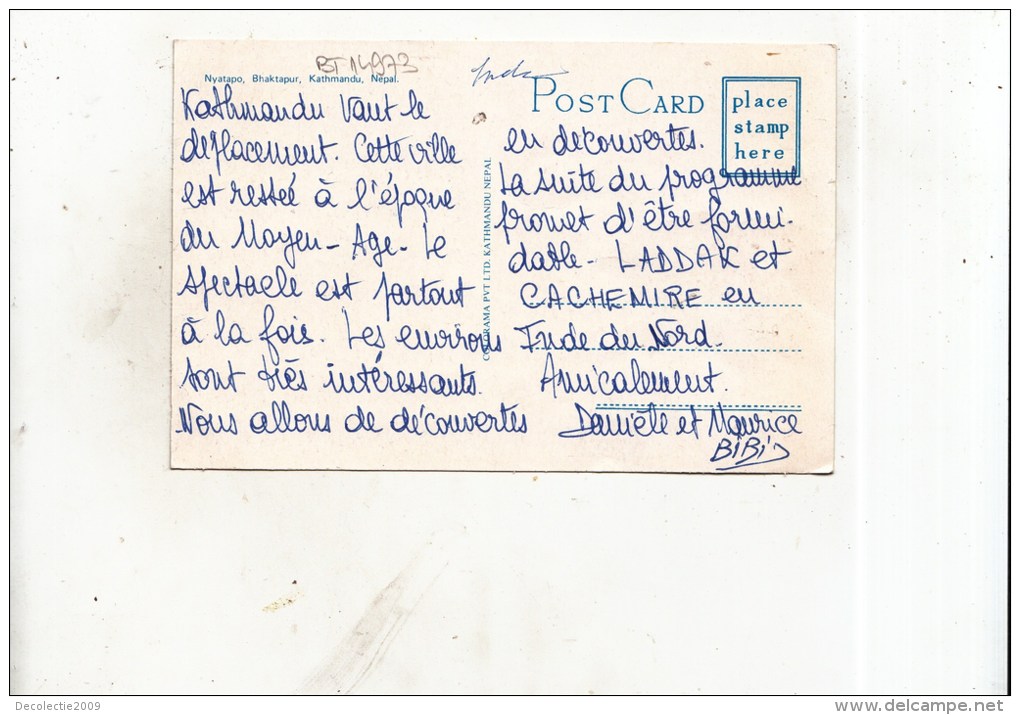 BT 14973
Nyatapo, Bhaktapur, Kathmandu, Nepal.
Kathmandu vaut le
déplacement. Cette ville
est restée à l'époque
du Moyen-Age. Le
spectacle est partout
à la fois. Les environs
sont très intéressants.
Nous allons de découvertes
COLORAMA PVT LTD. KATHMANDU NEPAL
POST CARD
place
stamp
here
en découvertes.
La suite du programme
promet d'être formi-
dable - LADDAK et
CACHEMIRE en
Inde du Nord.
Amicalement.
Danièle et Maurice
BiBi
Decolectie2009
www.delcampe.net